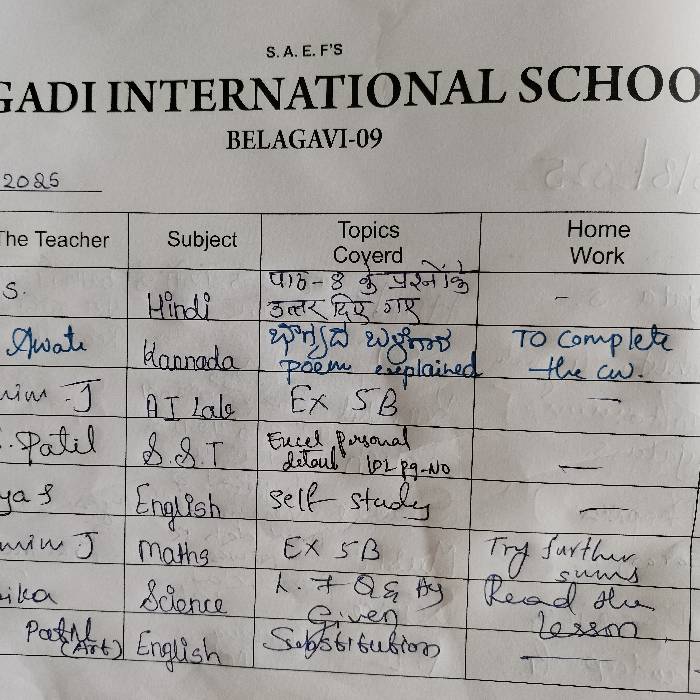 S. A. E. F'S
GADI INTERNATIONAL SCHOO
BELAGAVI-09
2025
The Teacher Subject Topics Coverd Home Work
S. Hindi पाठ-8 के प्रश्नों के –
उत्तर दिए गए
Awati Kannada ಭಾಗ್ಯದ TO Complete
poem explained the cw.
J AI Lab EX 5B —
Patil S.S.T Excel personal —
detail pg-No
ya S English self study —
J Maths EX 5B Try further
sums
ika Science L. 7 Q & Read the
Given Lesson
Patil (Art) English Substitution —